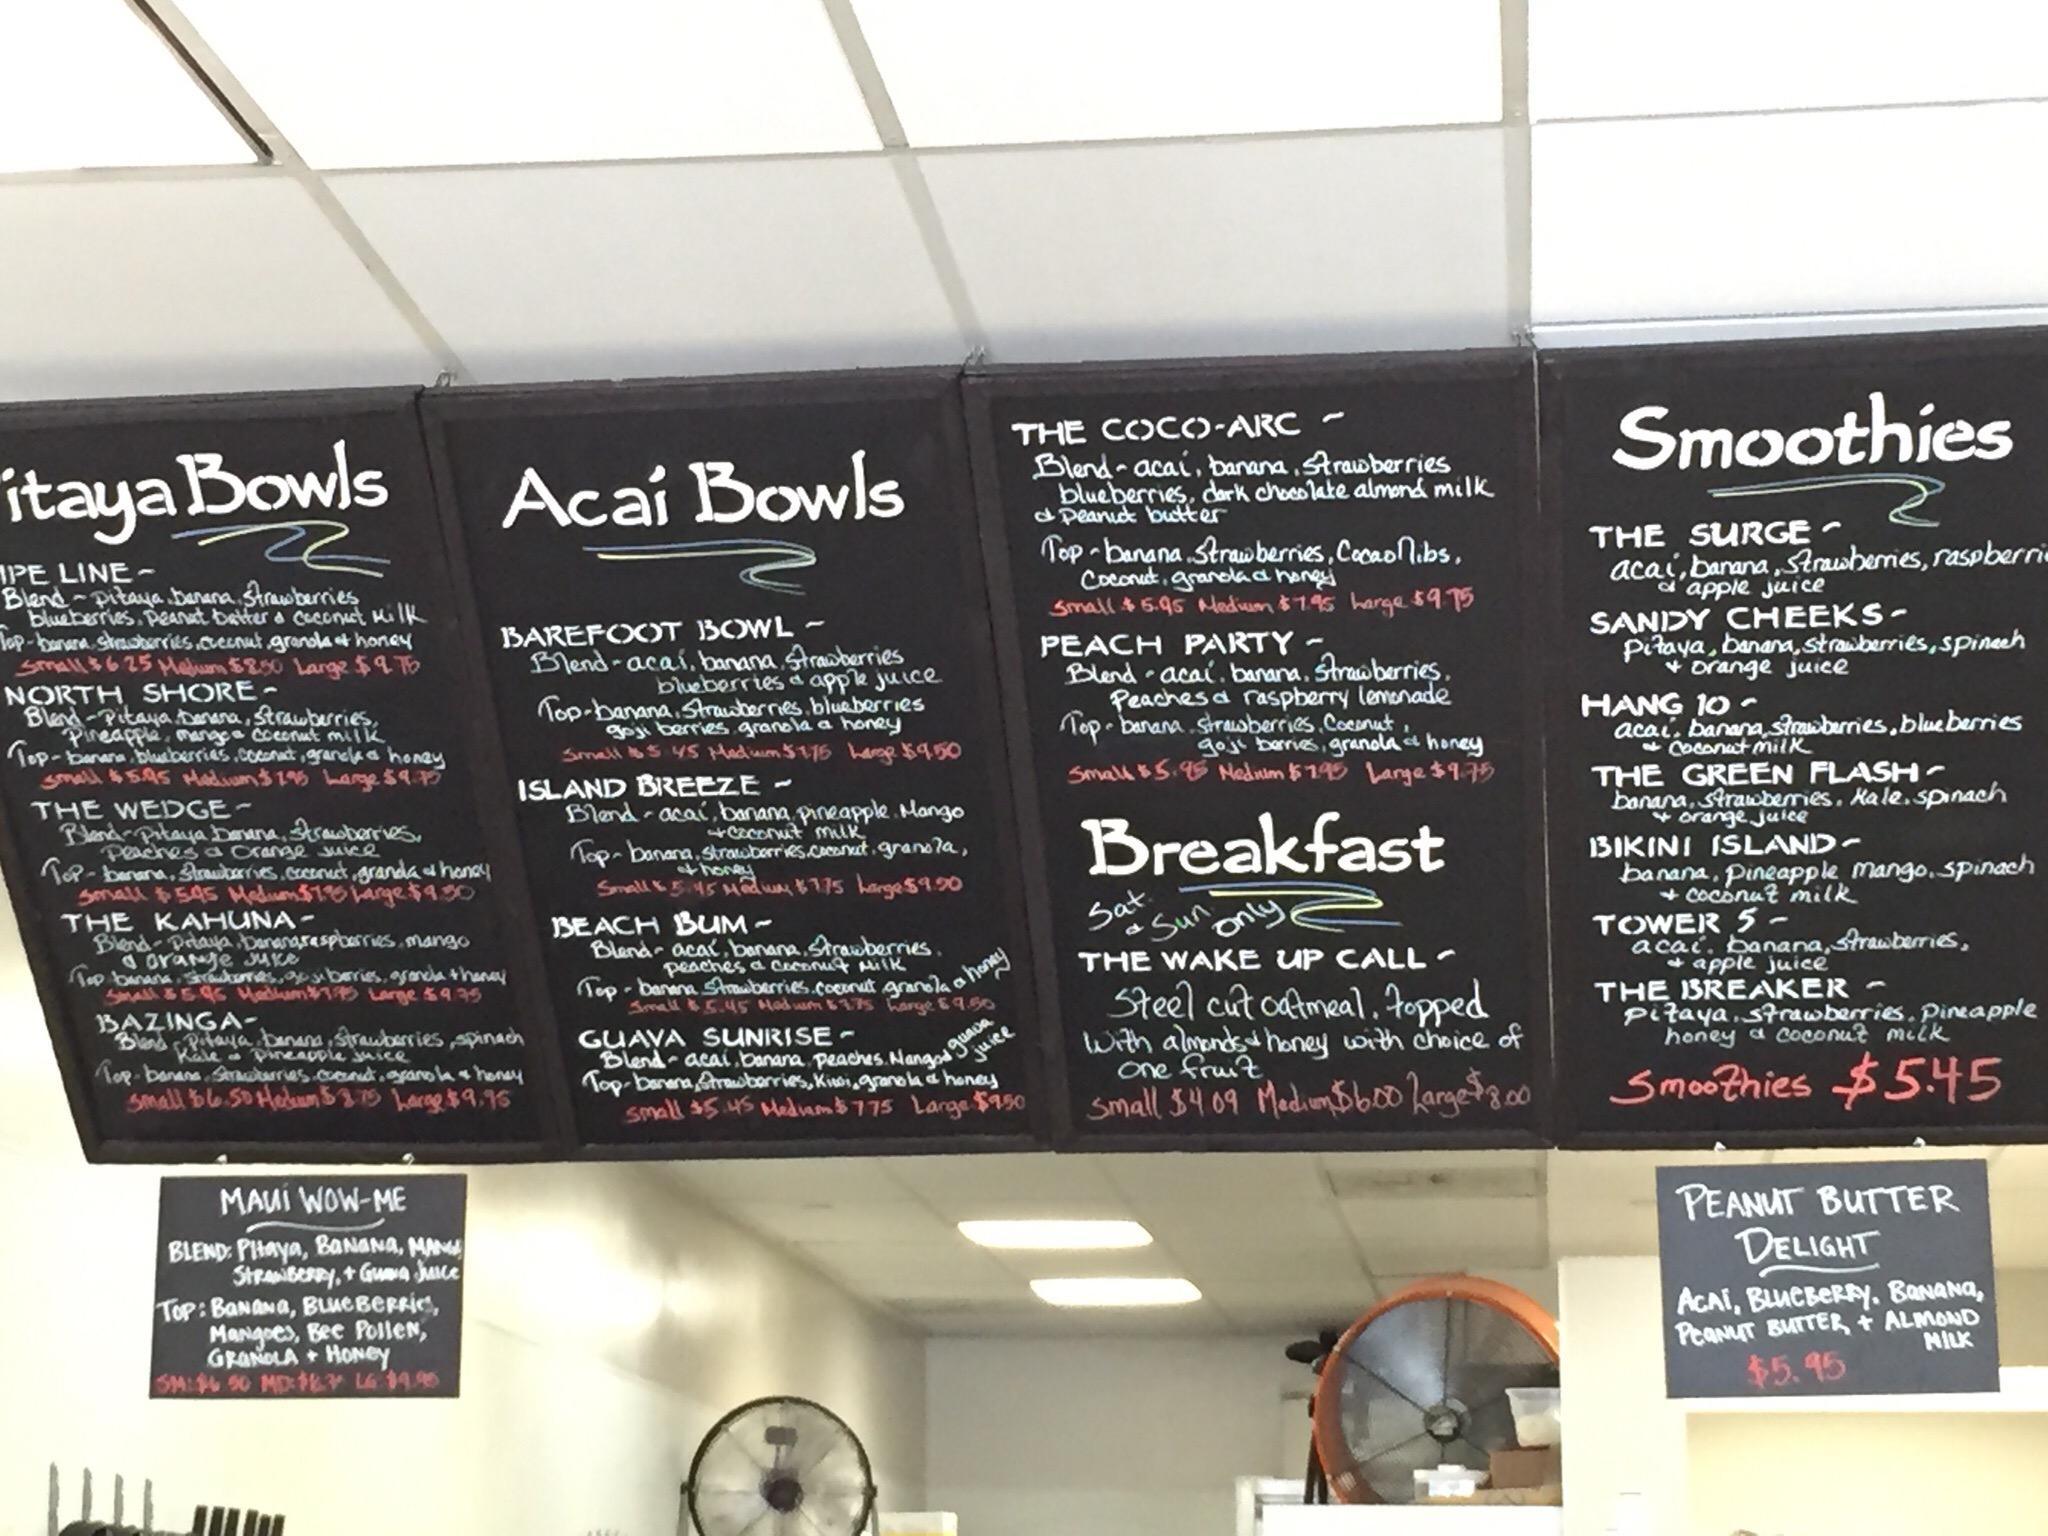 itaya Bowls
IPE LINE ~
Blend ~ Pitaya, banana, strawberries
blueberries, Peanut butter & coconut milk
Top - banana, strawberries, coconut, granola & honey
Small $6.25 Medium $8.50 Large $9.75
NORTH SHORE ~
Blend ~ Pitaya, banana, strawberries,
Pineapple, mango & coconut milk
Top - banana, blueberries, coconut, granola & honey
Small $5.95 Medium $7.95 Large $9.75
THE WEDGE ~
Blend ~ Pitaya, banana, strawberries,
Peaches & Orange juice
Top - banana, strawberries, coconut, granola & honey
Small $5.95 Medium $7.95 Large $9.50
THE KAHUNA ~
Blend - Pitaya, banana, raspberries, mango
& orange juice
Top - banana, strawberries, goji berries, granola + honey
Small $5.95 Medium $7.95 Large $9.75
BAZINGA ~
Blend - Pitaya, banana, strawberries, spinach
Kale & Pineapple juice
Top - banana, strawberries, coconut, granola & honey
Small $6.50 Medium $8.75 Large $9.95
MAUI WOW-ME
BLEND: Pitaya, BANANA, MANGO,
STRAWBERRY, + Guava Juice
TOP: BANANA, BLUEBERRIES,
Mangoes, Bee Pollen,
GRANOLA + HONEY
SM: $6.50 MD: $8.75 LG: $9.95
Acai Bowls
BAREFOOT BOWL ~
Blend - acai, banana, strawberries
blueberries & apple juice
Top - banana, strawberries, blueberries
goji berries, granola & honey
Small $5.45 Medium $7.75 Large $9.50
ISLAND BREEZE ~
Blend - acai, banana, pineapple, Mango
+ coconut milk
Top - banana, strawberries, coconut, granola,
& honey
Small $5.45 Medium $7.75 Large $9.50
BEACH BUM ~
Blend - acai, banana, strawberries,
peaches & coconut milk
Top - banana, strawberries, coconut, granola & honey
Small $5.45 Medium $7.75 Large $9.50
GUAVA SUNRISE ~
Blend - acai, banana, peaches, Mango & guava juice
Top - banana, strawberries, Kiwi, granola & honey
Small $5.45 Medium $7.75 Large $9.50
THE COCO-ARC ~
Blend - acai, banana, strawberries
blueberries, dark chocolate almond milk
& Peanut butter
Top - banana, strawberries, Cacao Nibs,
Coconut, granola & honey
Small $5.95 Medium $7.95 Large $9.75
PEACH PARTY ~
Blend - acai, banana, strawberries,
Peaches & raspberry lemonade
Top - banana, strawberries, Coconut,
goji berries, granola & honey
Small $5.95 Medium $7.95 Large $9.75
Breakfast
Sat. & Sun only
THE WAKE UP CALL ~
Steel cut oatmeal, topped
With almonds & honey with choice of
one fruit
Small $4.09 Medium $6.00 Large $8.00
Smoothies
THE SURGE ~
acai, banana, strawberries, raspberri
& apple juice
SANDY CHEEKS ~
pitaya, banana, strawberries, spinach
+ orange juice
HANG 10 ~
acai, banana, strawberries, blueberries
+ coconut milk
THE GREEN FLASH ~
banana, strawberries, Kale, spinach
+ orange juice
BIKINI ISLAND ~
banana, Pineapple mango, spinach
+ coconut milk
TOWER 5 ~
acai, banana, strawberries,
+ apple juice
THE BREAKER ~
pitaya, strawberries, pineapple
honey & coconut milk
Smoothies $5.45
PEANUT BUTTER
DELIGHT
ACAI, BLUEBERRY, BANANA,
PEANUT BUTTER, + ALMOND
MILK
$5.95